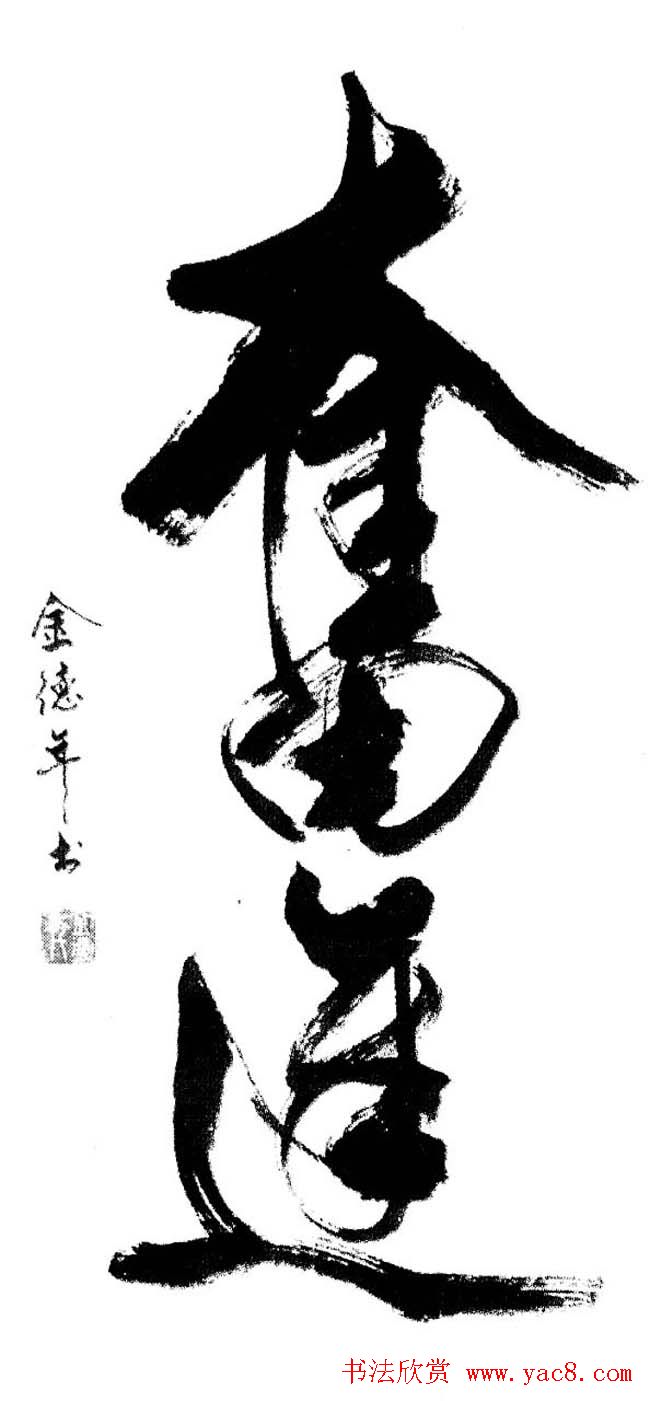 奮進
金德年书
书法欣赏 www.yac8.com